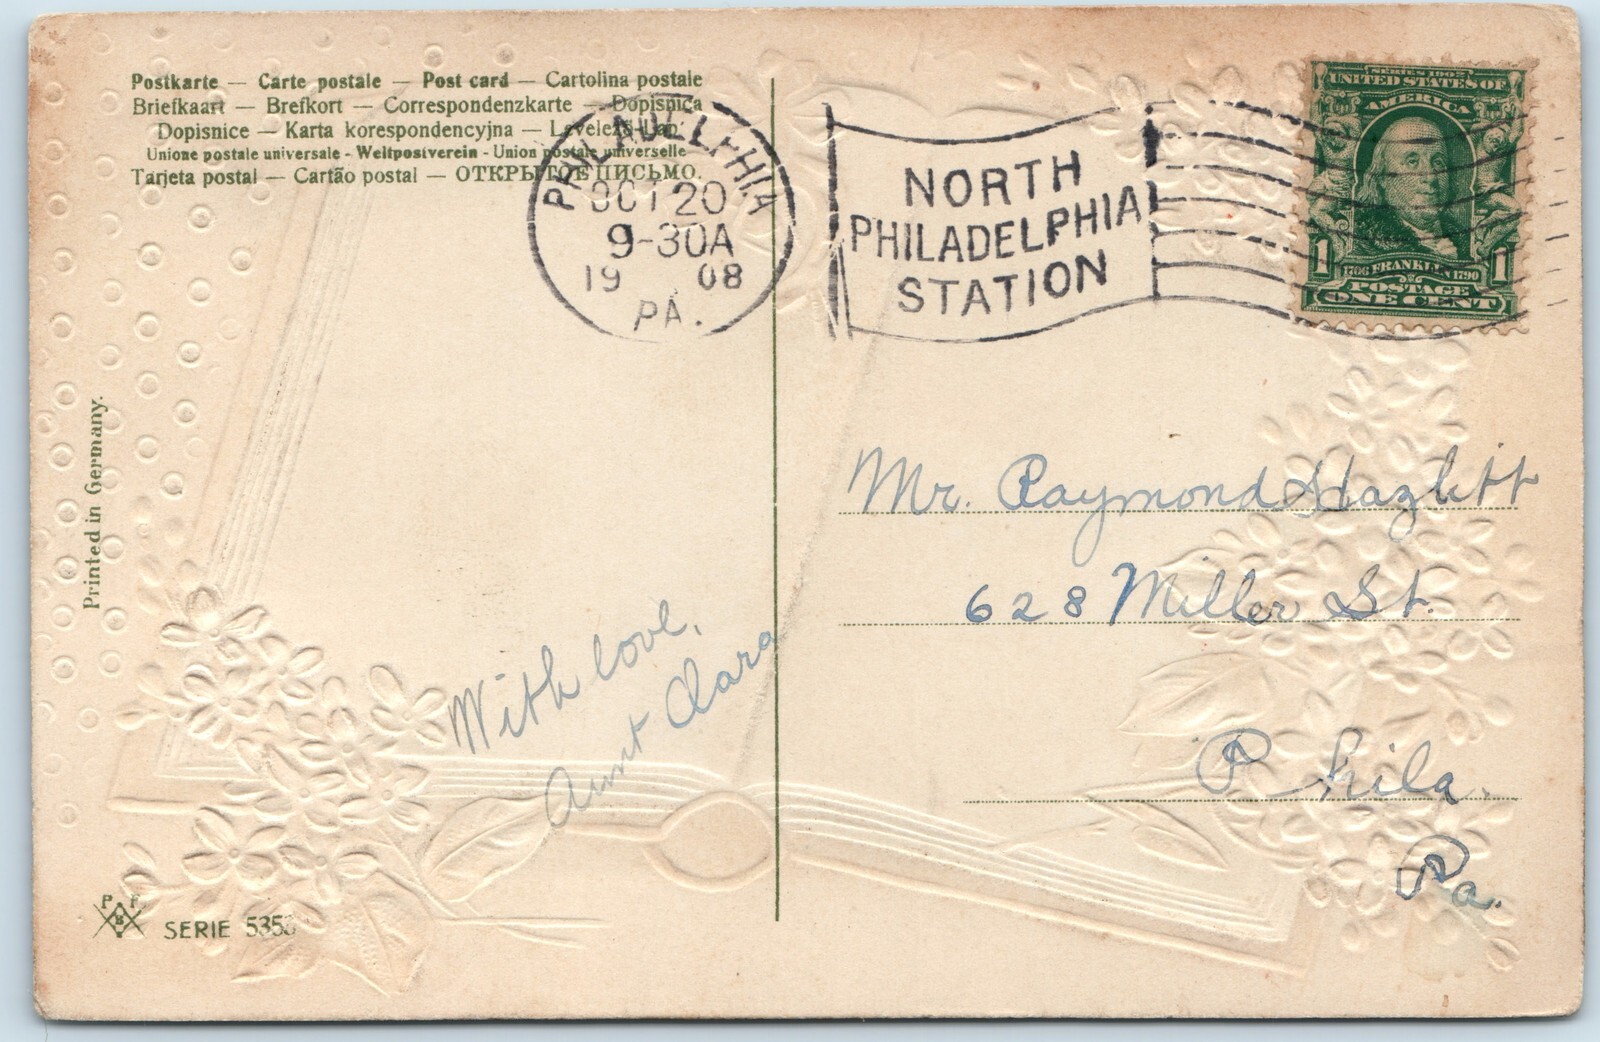 Postkarte — Carte postale — Post card — Cartolina postale
Briefkaart — Brefkort — Correspondenzkarte — Dopisnica
Dopisnice — Karta korespondencyjna — Levelező-Lap.
Unione postale universale - Weltpostverein - Union postale universelle
Tarjeta postal — Cartão postal — ОТКРЫТОЕ ПИСЬМО.
PHILADELPHIA
OCT 20
9-30A
19 08
PA.
NORTH
PHILADELPHIA
STATION
SERIES 1902
UNITED STATES OF
AMERICA
1 1
1706 FRANKLIN 1790
POSTAGE
ONE CENT
Printed in Germany.
Mr. Raymond Hazlitt
628 Miller St.
Phila.
Pa.
With love,
Aunt Clara
P F B
SERIE 535